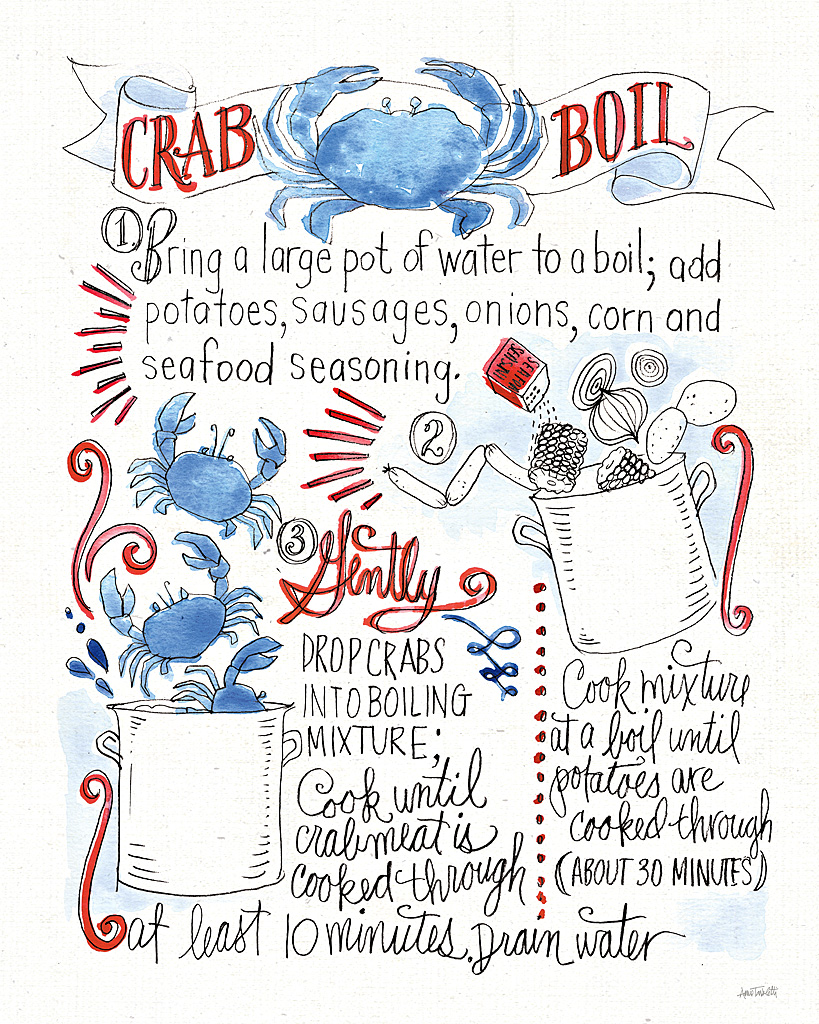 CRAB BOIL
1 Bring a large pot of water to a boil; add
potatoes, sausages, onions, corn and
seafood seasoning.
SEAFOOD
SEASON
2
Cook mixture
at a boil until
potatoes are
cooked through
(ABOUT 30 MINUTES)
3 Gently
DROP CRABS
INTO BOILING
MIXTURE;
Cook until
crabmeat is
cooked through
at least 10 minutes. Drain water